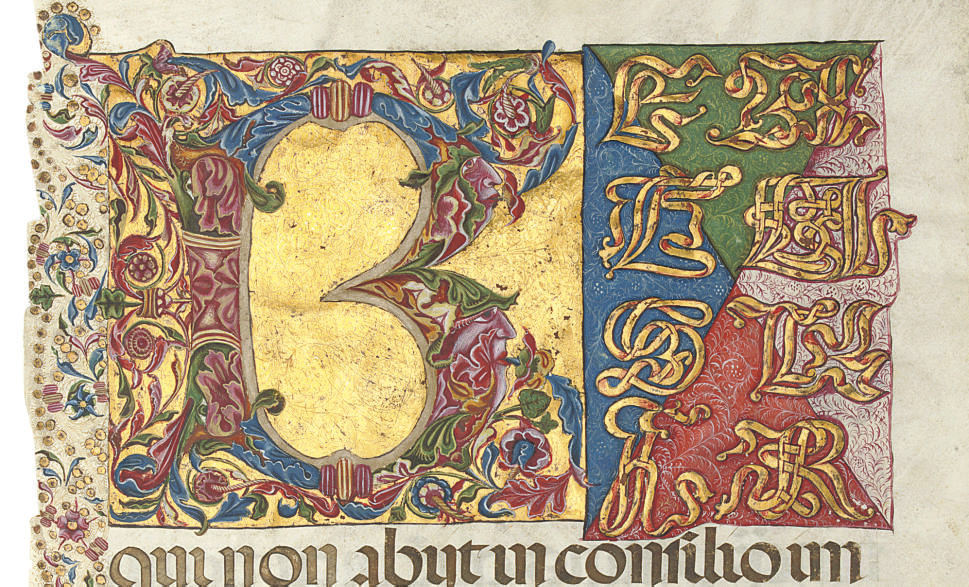 BEA
TU
S V
IR
qui non abijt in consilio im